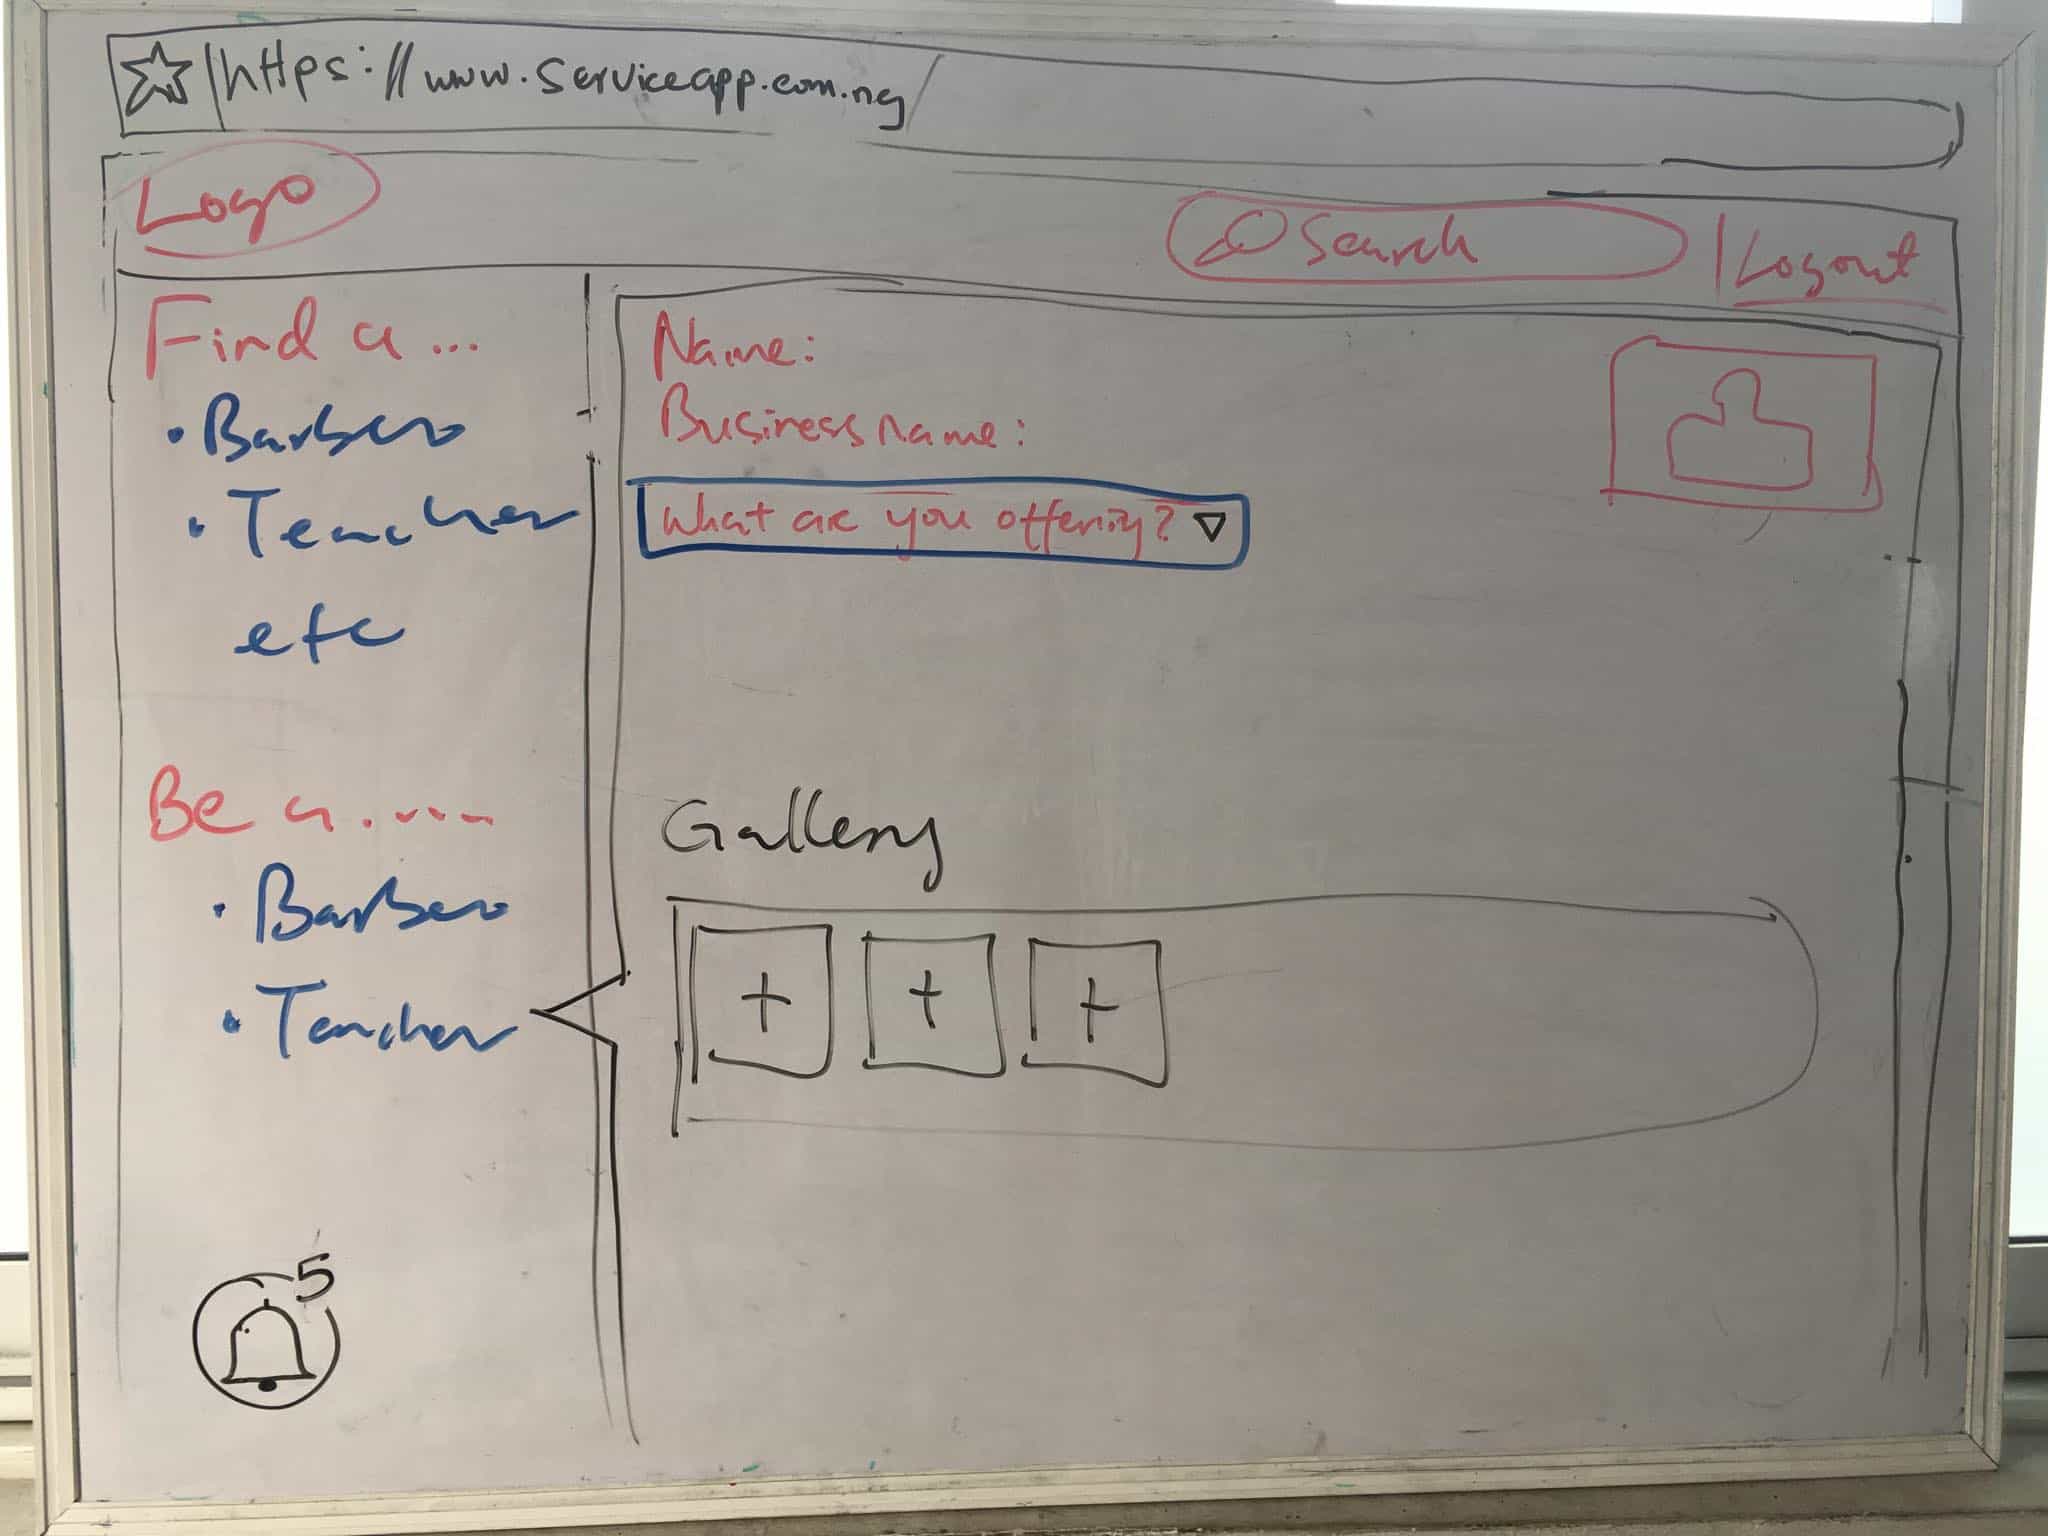 https://www.serviceapp.com.ng
Logo
Search | Logout
Find a ...
• Barber
• Teacher
etc
Be a ....
• Barber
• Teacher
5
Name:
Business name:
What are you offering?
Gallery
+ + +